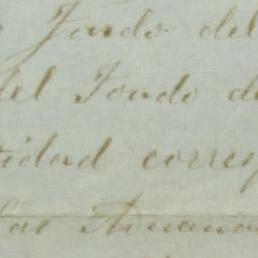 Fondo del
del Fondo de
tidad corres
las Aduana